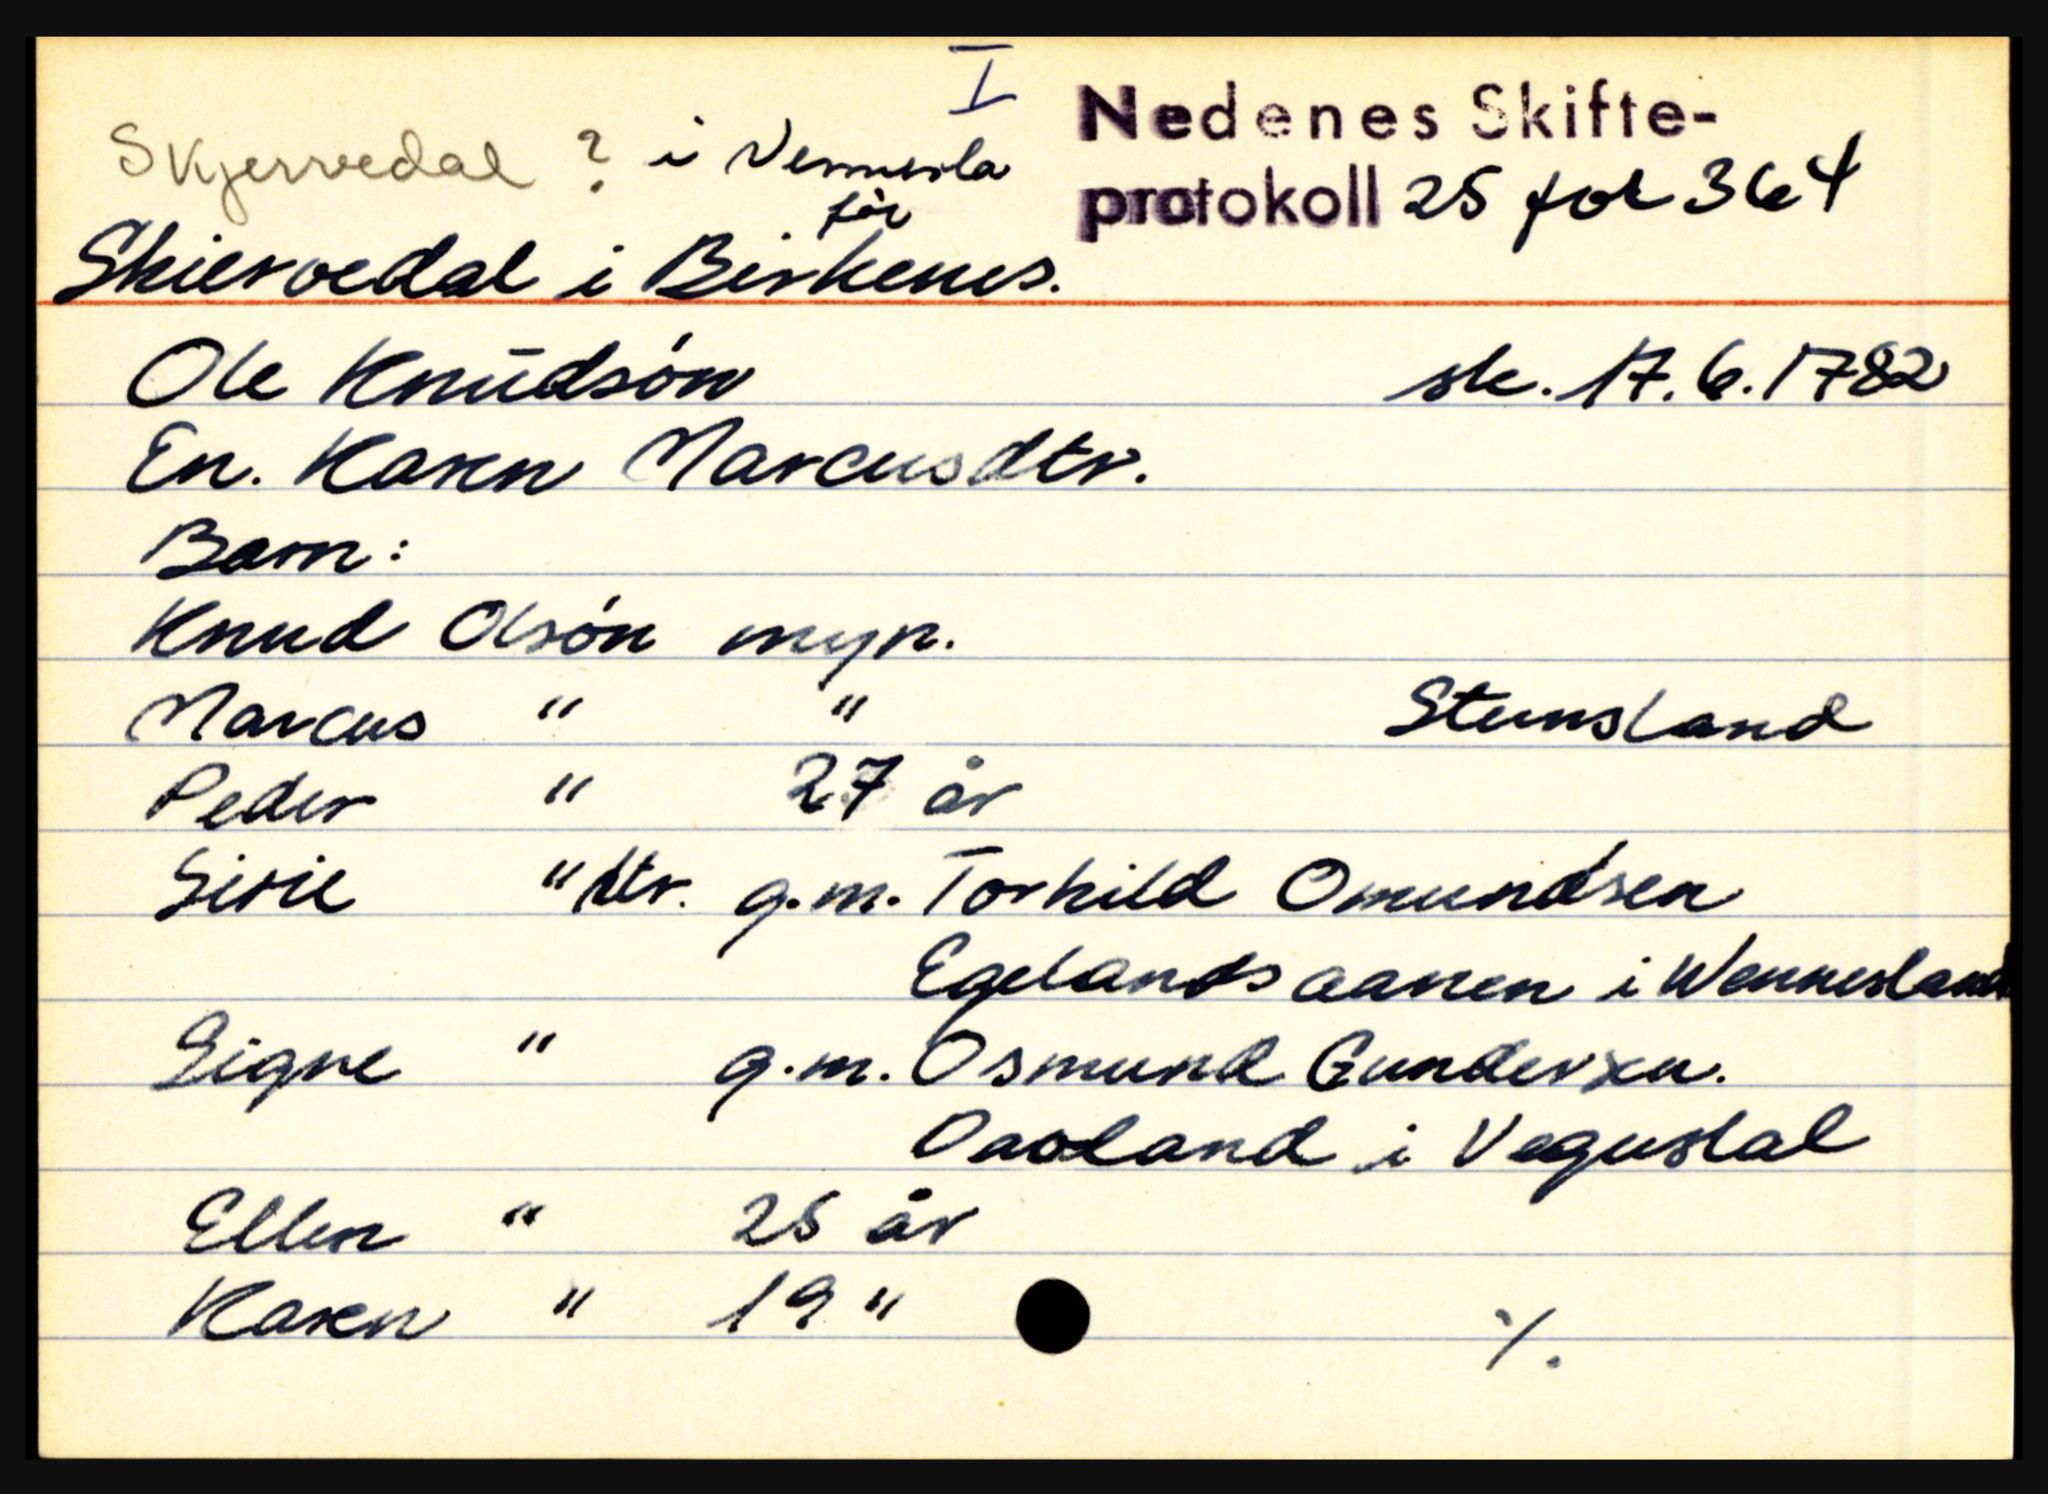 I
Nedenes Skifte-
Skjervedal ? i Vennesla
protokoll 25 fol 364
før
Skiervedal i Birkenes.
Ole Knudsøn sk. 17.6.1782
En. Karen Marcusdtr.
Barn:
Knud Olsøn myn.
Marcus " " Stensland
Peder " 27 år
Sirie " dtr. g.m. Torkild Omundsen
Egelandsaanen i Wennesland
Signe " g.m. Osmund Gundersen.
Oasland i Vegusdal
Ellen " 25 år
Karen " 19 "
./.